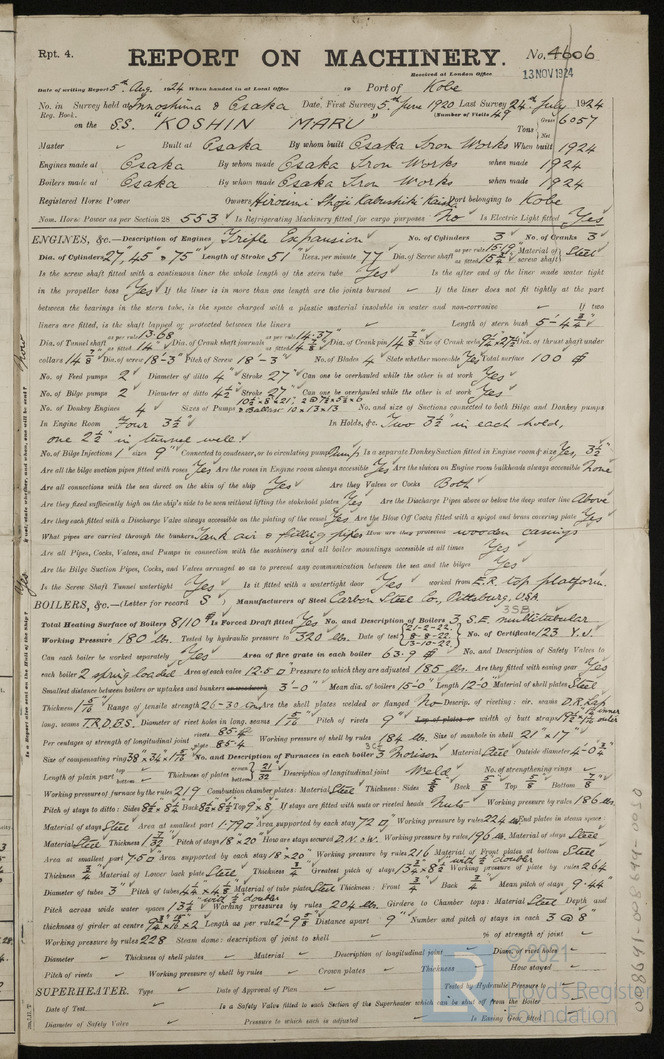 Rpt. 4.
REPORT ON MACHINERY.
No. 4606
Received at London Office
13 NOV 1924
Date of writing Report 5th Aug. 1924 When handed in at Local Office 10 Port of Kobe
No. in Survey held at Innoshima & Osaka Date, First Survey 5th June 1920 Last Survey 24th July 1924
Reg. Book. (Number of Visits 49
on the SS. "KOSHIN MARU" Tons Gross 6057 Net
Master Built at Osaka By whom built Osaka Iron Works When built 1924
Engines made at Osaka By whom made Osaka Iron Works when made 1924
Boilers made at Osaka By whom made Osaka Iron Works when made 1924
Registered Horse Power Owners Hiroumi Shoji Kabushiki Kaisha Port belonging to Kobe
Nom. Horse Power as per Section 28 553 Is Refrigerating Machinery fitted for cargo purposes No Is Electric Light fitted Yes
ENGINES, &c.—Description of Engines Triple Expansion No. of Cylinders 3 No. of Cranks 3
Dia. of Cylinders 27", 45" & 75" Length of Stroke 51" Revs. per minute 77 Dia. of Screw shaft as per rule 15.19" as fitted 15 3/4" Material of screw shaft Steel
Is the screw shaft fitted with a continuous liner the whole length of the stern tube Yes Is the after end of the liner made water tight
in the propeller boss Yes If the liner is in more than one length are the joints burned If the liner does not fit tightly at the part
between the bearings in the stern tube, is the space charged with a plastic material insoluble in water and non-corrosive If two
liners are fitted, is the shaft lapped or protected between the liners Length of stern bush 5'-4 3/4"
Dia. of Tunnel shaft as per rule 13.68 as fitted 14" Dia. of Crank shaft journals as per rule 14.37" as fitted 14 7/8" Dia. of Crank pin 14 7/8" Size of Crank webs Dia. of thrust shaft under
collars 14 7/8" Dia. of screw 18'-3" Pitch of Screw 18'-3" No. of Blades 4 State whether moveable Yes Total surface 100
No. of Feed pumps 2 Diameter of ditto 4" Stroke 27" Can one be overhauled while the other is at work Yes
No. of Bilge pumps 2 Diameter of ditto 4 1/2" Stroke 27" Can one be overhauled while the other is at work Yes
No. of Donkey Engines 4 Sizes of Pumps Ballast 10 x 13 x 13 No. and size of Suctions connected to both Bilge and Donkey pumps
In Engine Room Four 3 1/2" In Holds, &c. Two 3 1/2" in each hold,
one 2 1/2" in tunnel well.
No. of Bilge Injections 1 sizes 9" Connected to condenser, or to circulating pump Pump Is a separate Donkey Suction fitted in Engine room & size Yes, 3 1/2"
Are all the bilge suction pipes fitted with roses Yes Are the roses in Engine room always accessible Yes Are the sluices on Engine room bulkheads always accessible None
Are all connections with the sea direct on the skin of the ship Yes Are they Valves or Cocks Both
Are they fixed sufficiently high on the ship's side to be seen without lifting the stokehold plates Yes Are the Discharge Pipes above or below the deep water line Above
Are they each fitted with a Discharge Valve always accessible on the plating of the vessel Yes Are the Blow Off Cocks fitted with a spigot and brass covering plate Yes
What pipes are carried through the bunkers Tank air & filling pipes How are they protected wooden casings
Are all Pipes, Cocks, Valves, and Pumps in connection with the machinery and all boiler mountings accessible at all times Yes
Are the Bilge Suction Pipes, Cocks, and Valves arranged so as to prevent any communication between the sea and the bilges Yes
Is the Screw Shaft Tunnel watertight Yes Is it fitted with a watertight door Yes worked from E.R. top platform.
BOILERS, &c.—(Letter for record S) Manufacturers of Steel Carbon Steel Co., Pittsburg, U.S.A.
3SB
Total Heating Surface of Boilers 8110 Is Forced Draft fitted Yes No. and Description of Boilers 3, S.E. multitubular
Working Pressure 180 lbs. Tested by hydraulic pressure to 320 lbs. Date of test 21-2-22. 8-8-22. 13-10-22. No. of Certificate 123 Y.J.
Can each boiler be worked separately Yes Area of fire grate in each boiler 63.9 No. and Description of Safety Valves to
each boiler 2 spring loaded Area of each valve 12.5 Pressure to which they are adjusted 185 lbs. Are they fitted with easing gear Yes
Smallest distance between boilers or uptakes and bunkers 3'-0" Mean dia. of boilers 15'-0" Length 12'-0" Material of shell plates Steel
Thickness 1 5/16 Range of tensile strength 26-30 Are the shell plates welded or flanged No Descrip. of riveting: cir. seams D.R.Lap
long. seams T.R.D.B.S. Diameter of rivet holes in long. seams 1 5/16" Pitch of rivets 9" width of butt straps
Per centages of strength of longitudinal joint rivets 85.4 plate 85.4 Working pressure of shell by rules 184 lbs. Size of manhole in shell 21" x 17"
Size of compensating ring No. and Description of Furnaces in each boiler 3 Morison Material Steel Outside diameter 4'-0 3/4"
Length of plain part top bottom Thickness of plates crown bottom 21/32 Description of longitudinal joint Weld No. of strengthening rings
Working pressure of furnace by the rules 219 Combustion chamber plates: Material Steel Thickness: Sides 5/8" Back 5/8" Top 5/8" Bottom 7/8"
Pitch of stays to ditto: Sides Back Top 9" x 8" If stays are fitted with nuts or riveted heads Nuts Working pressure by rules 186 lbs.
Material of stays Steel Area at smallest part 1.79 Area supported by each stay 72 Working pressure by rules 224 lbs. End plates in steam space:
Material Steel Thickness Pitch of stays 18" x 20" How are stays secured D.N. & W. Working pressure by rules 196 lbs. Material of stays Steel
Area at smallest part Area supported by each stay 18" x 20" Working pressure by rules 216 Material of Front plates at bottom Steel
Thickness 3/4" Material of Lower back plate Steel Thickness 3/4" Greatest pitch of stays with 1/2" doubler Working pressure of plate by rules 264
Diameter of tubes 3" Pitch of tubes Material of tube plates Steel Thickness: Front 3/4" Back 3/4" Mean pitch of stays 9.44"
Pitch across wide water spaces 13 1/4" with 1/2" doubler Working pressures by rules 204 lbs. Girders to Chamber tops: Material Steel Depth and
thickness of girder at centre Length as per rule Distance apart 9" Number and pitch of stays in each 3 @ 8"
Working pressure by rules 228 Steam dome: description of joint to shell % of strength of joint
Diameter Thickness of shell plates Material Description of longitudinal joint Diam. of rivet holes
Pitch of rivets Working pressure of shell by rules Crown plates Thickness How stayed
SUPERHEATER. Type Date of Approval of Plan Tested by Hydraulic Pressure to
Date of Test Is a Safety Valve fitted to each Section of the Superheater which can be shut off from the Boiler
Diameter of Safety Valve Pressure to which each is adjusted Is Easing Gear fitted
© 2021
Lloyd's Register
Foundation
008691-008699-0030